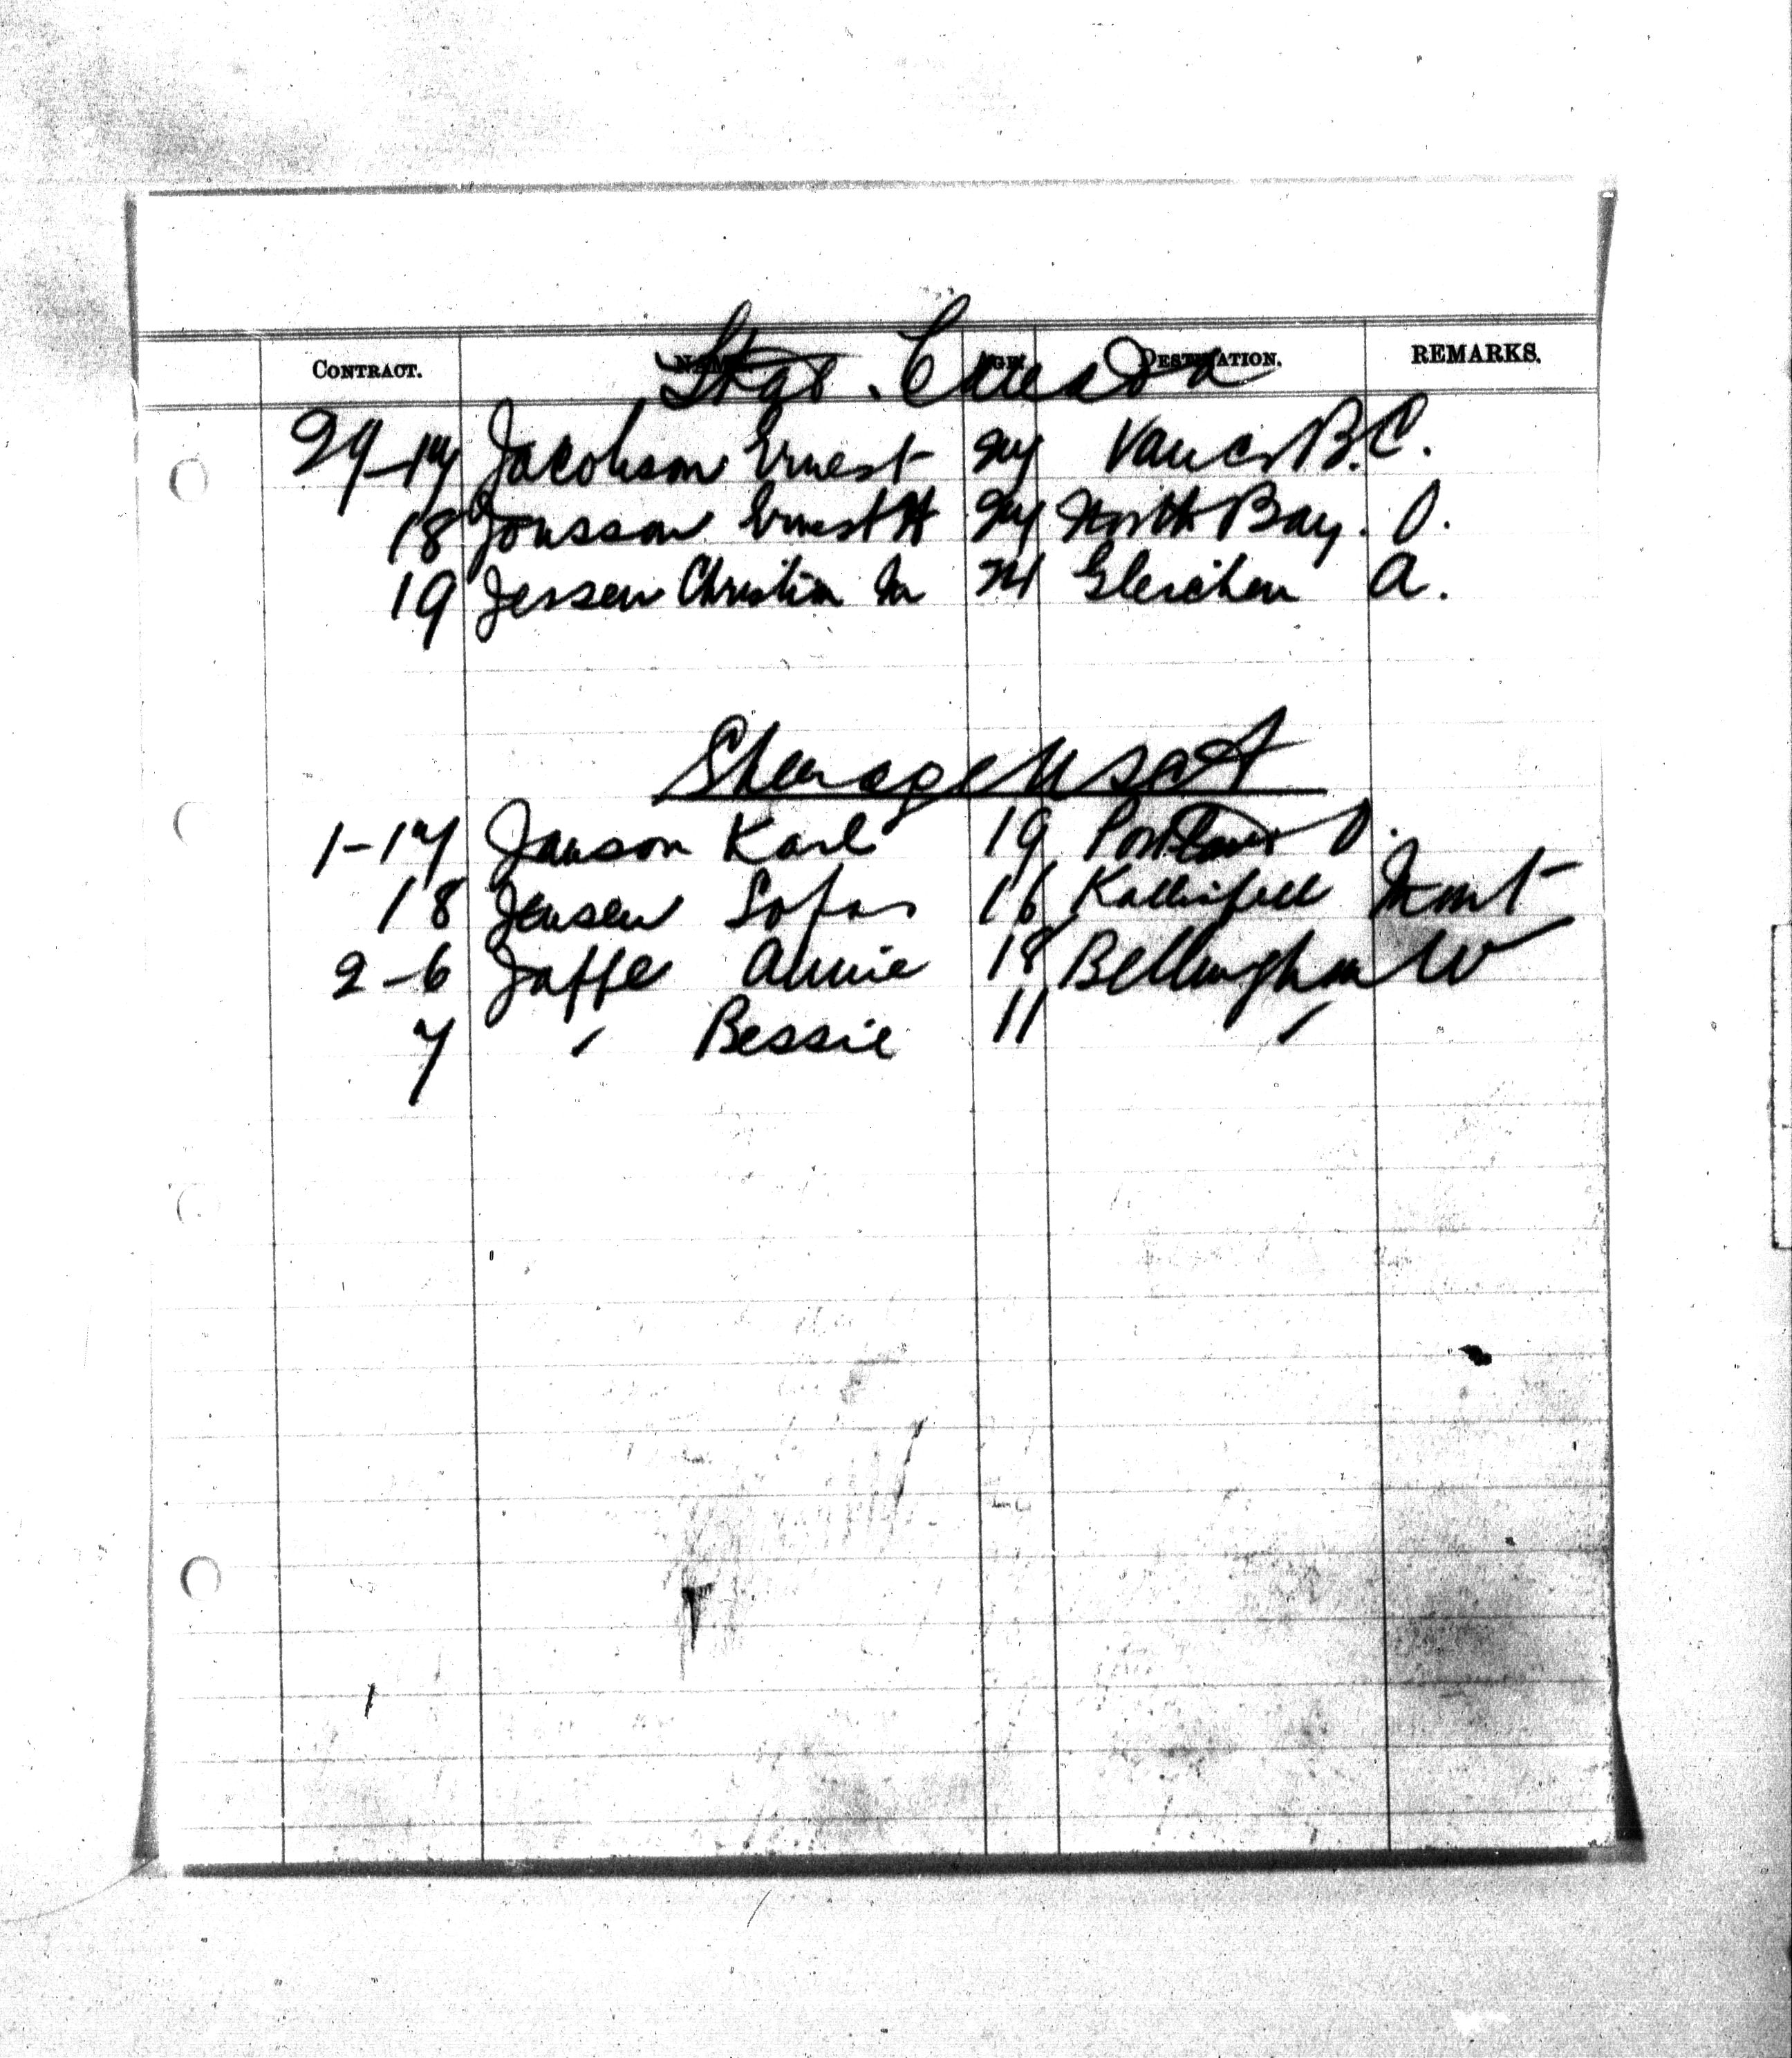 Stge. Canada
CONTRACT. NAME. AGE. DESTINATION. REMARKS.
29-17 Jacobson Ernest 27 Vancr B.C.
18 Jonsson Ernest H 27 North Bay. O.
19 Jessen Christian M 21 Gleichen A.
Steerage
1-17 Janson Karl 19 Portland O.
18 Jensen Sofus 16 Kallispell Mont
2-6 Jaffe Annie 18 Bellingham W
7 " Bessie 11 "